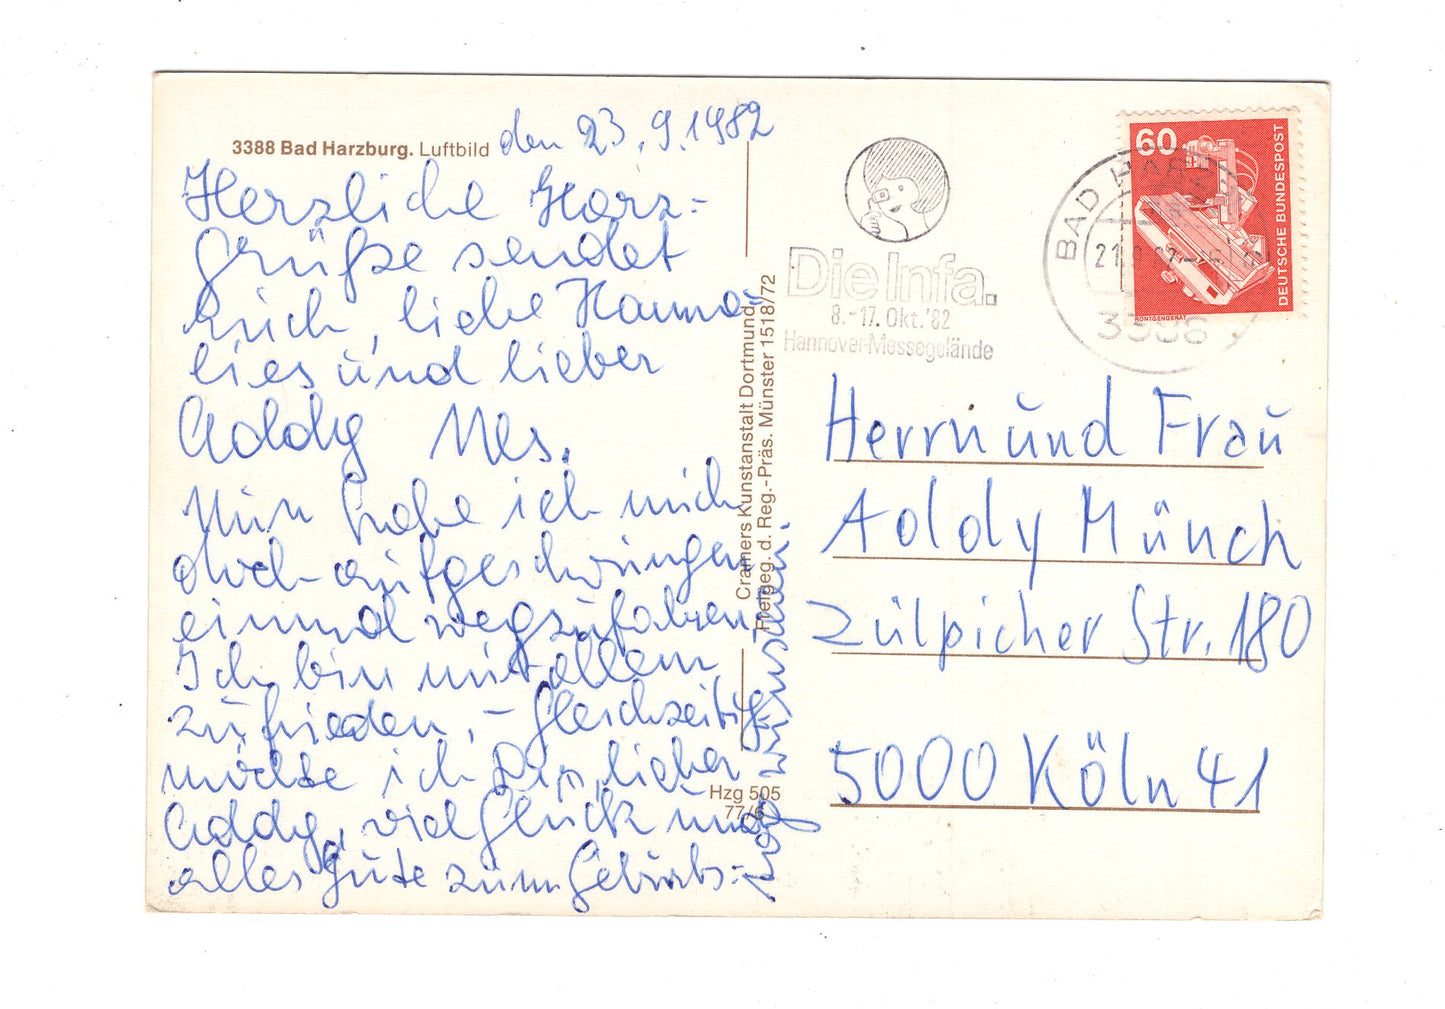 3388 Bad Harzburg. Luftbild
den 23.9.1982
Herzliche Harz-
grüße sendet
Euch, liebe Hanne-
lies und lieber
Addy
Nun habe ich mich
doch aufgeschwungen
einmal wegzufahren
Ich bin mit allem
zufrieden, – Gleichzeitig
möchte ich Dir, lieber
Addy, viel Glück und
alles Gute zum Geburts-
tag wünschen
Cramers Kunstanstalt Dortmund
Freigeg. d. Reg.-Präs. Münster 1518/72
Hzg 505
77/6
Die Infa.
8.-17. Okt. '82
Hannover-Messegelände
BAD HARZ
3388
60
DEUTSCHE BUNDESPOST
RÖNTGENGERÄT
Herrn und Frau
Addy Münch
Zülpicher Str. 180
5000 Köln 41